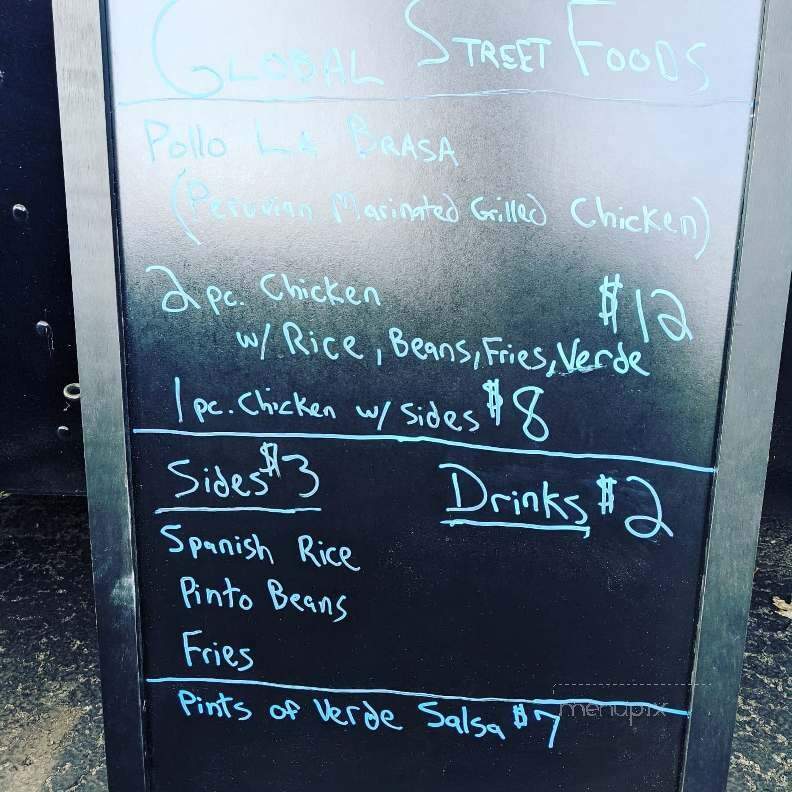 Global Street Foods
Pollo La Brasa
(Peruvian Marinated Grilled Chicken)
2 pc. Chicken $12
w/ Rice, Beans, Fries, Verde
1 pc. Chicken w/ Sides $8
Sides $3 Drinks $2
Spanish Rice
Pinto Beans
Fries
Pints of Verde Salsa $7
menupix